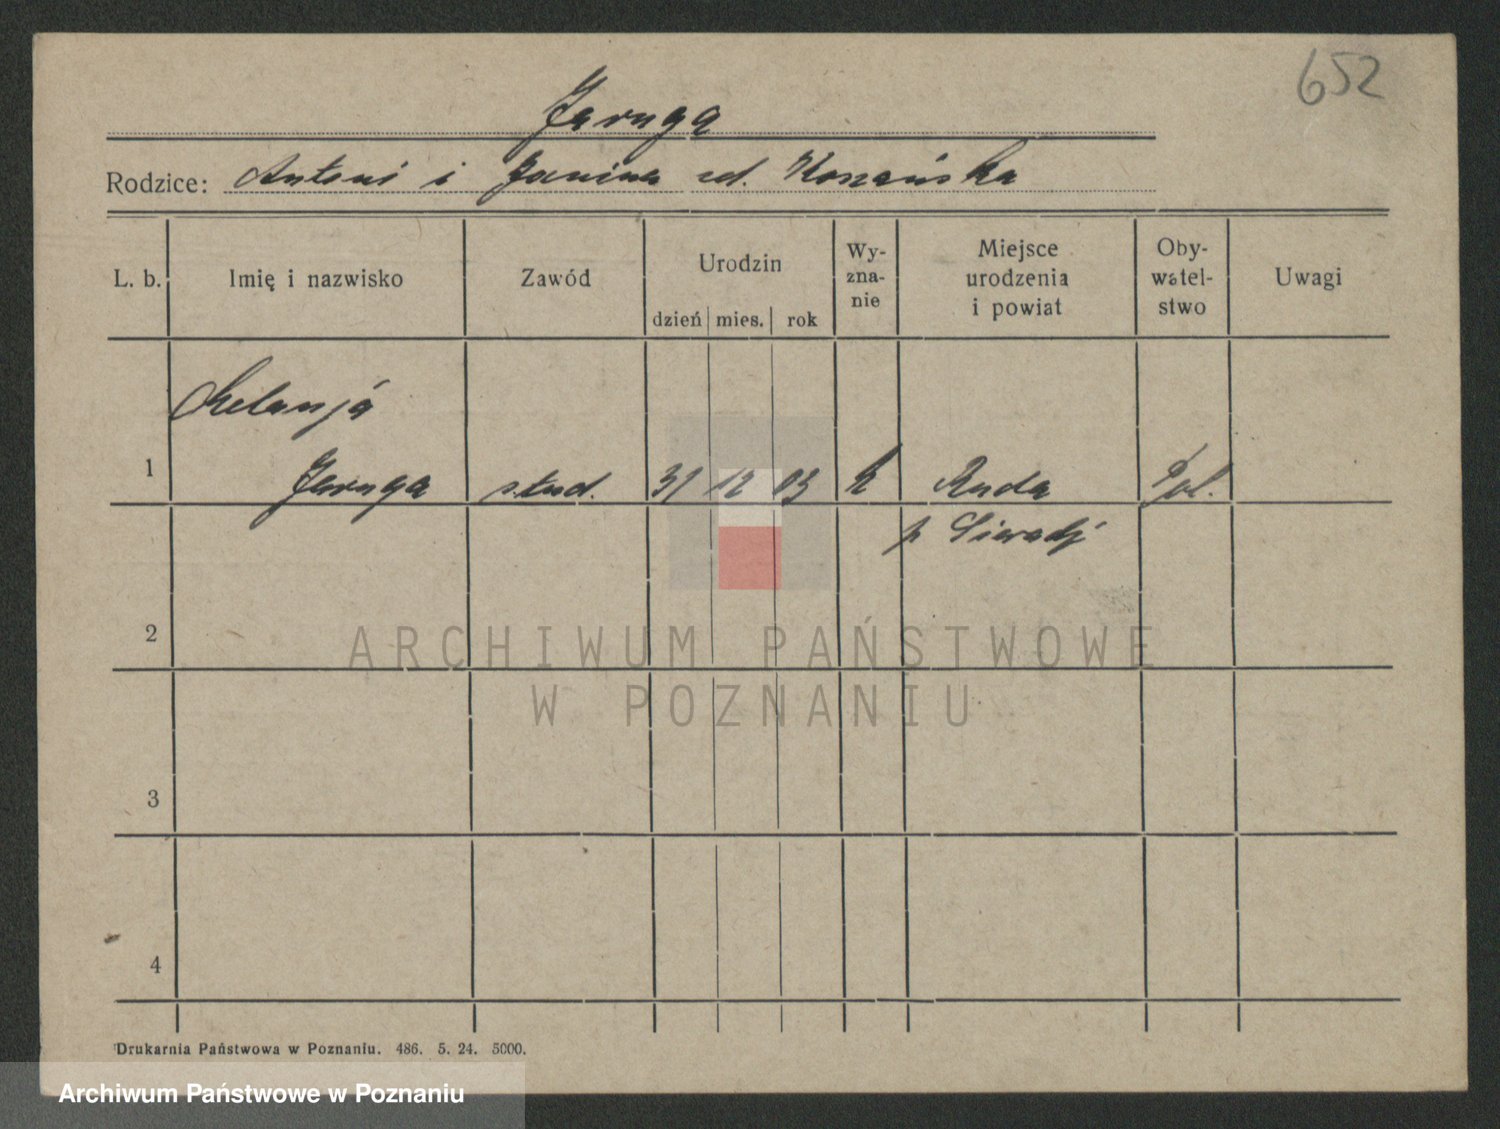 652
Jaruga
Rodzice: Antoni i Janina zd.
L. b. Imię i nazwisko Zawód Urodzin dzień mies. rok Wy-zna-nie Miejsce urodzenia i powiat Oby-watel-stwo Uwagi
Melanja
1 Jaruga stud. 31 12 03 k Ruda Pol.
p Sieradz
2
ARCHIWUM PAŃSTWOWE
W POZNANIU
3
4
Drukarnia Państwowa w Poznaniu. 486. 5. 24. 5000.
Archiwum Państwowe w Poznaniu